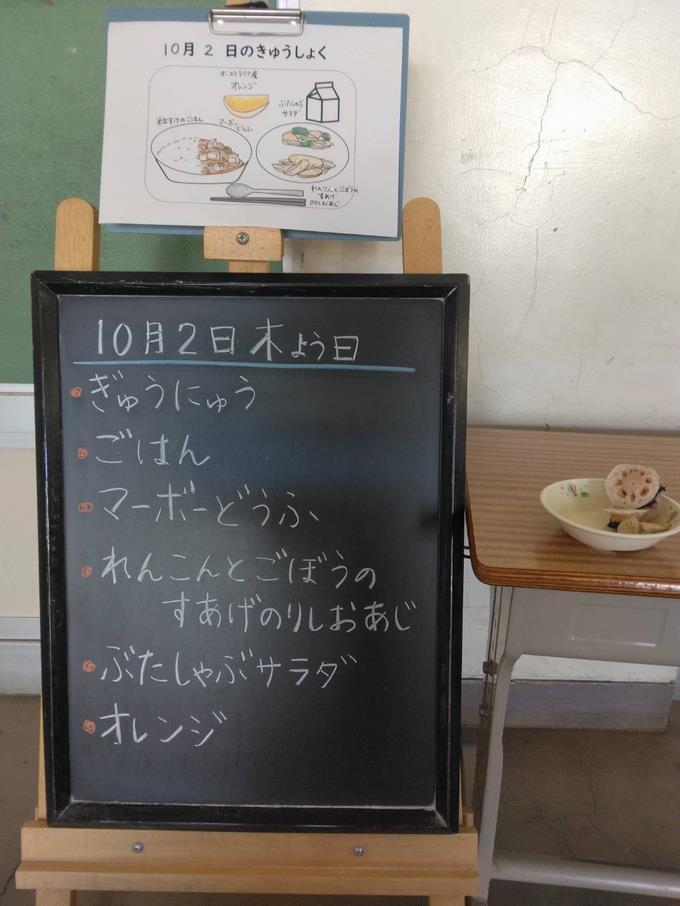 10月 2 日のきゅうしょく
オーストラリア産
オレンジ
ぶたしゃぶ
サラダ
マーボー
どうふ
れんこんとごぼうの
すあげ
のりしおあじ
10月2日木よう日
ぎゅうにゅう
ごはん
マーボーどうふ
れんこんとごぼうの
すあげのりしおあじ
ぶたしゃぶサラダ
オレンジ